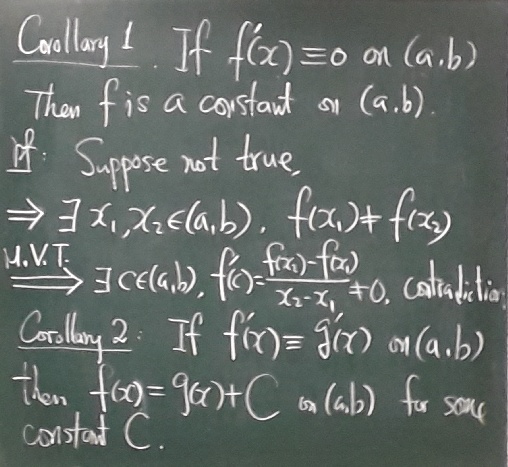 Corollary 1. If f'(x)≡0 on (a,b)
Then f is a constant on (a,b).
pf: Suppose not true,
⇒ ∃ x₁,x₂∈(a,b), f(x₁)≠f(x₂)
M.V.T. ⟹ ∃ c∈(a,b), f'(c)=(f(x₂)-f(x₁))/(x₂-x₁)≠0, contradiction
Corollary 2: If f'(x)≡g'(x) on (a,b)
then f(x)=g(x)+C on (a,b) for some
constant C.